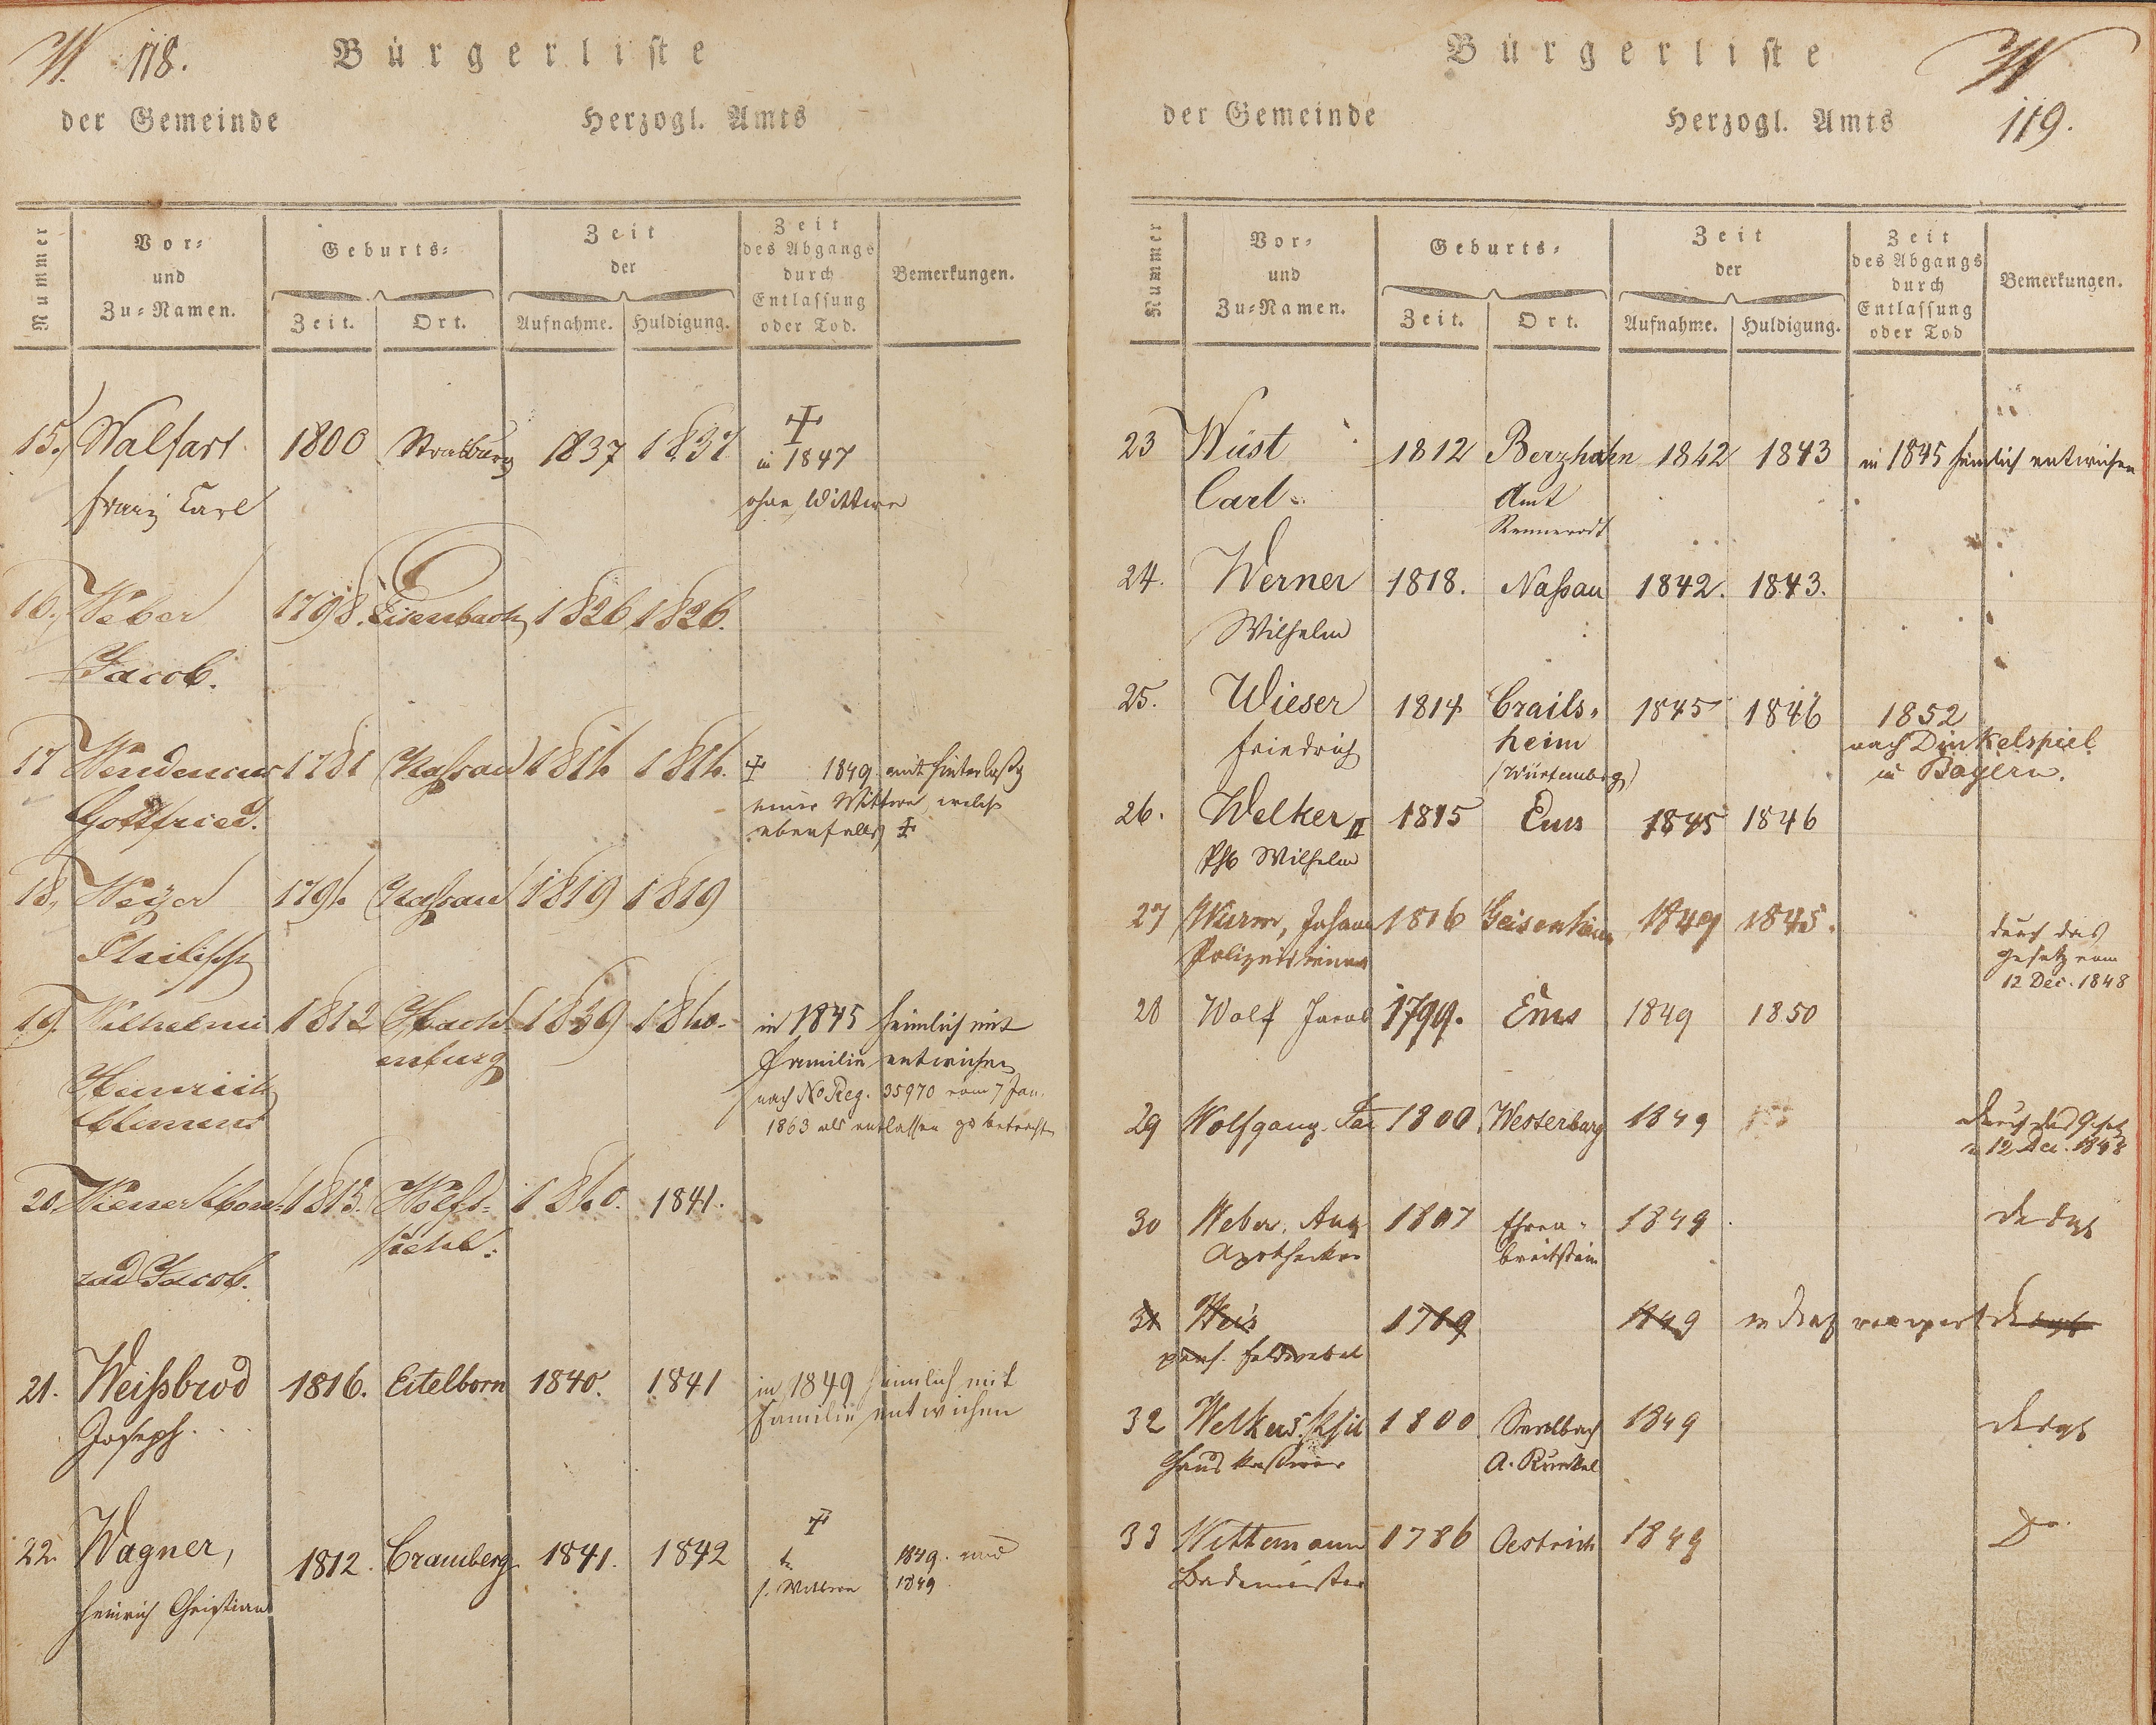 W. 118.
Bürgerliste
der Gemeinde Herzogl. Amts
Nummer
Vor- und Zu-Namen.
Geburts-
Zeit. Ort.
Zeit der
Aufnahme. Huldigung.
Zeit des Abgangs durch Entlassung oder Tod.
Bemerkungen.
15. Walfart 1800 Straßburg 1837 1837 † in 1847
Franz Carl ohne Wittwe
16. Weber 1798. Eisenbach 1826 1826.
Jacob.
17 Wendenius 1781 Nassau 1814 1814. † 1849. mit Hinterlaßg
Gottfried. einer Wittwe, welche
ebenfalls †
18. Weyer 1794. Nassau 1819 1819
Philipp
19. Wilhelmi 1812 Hach- 1839 1840. in 1845 heimlich mit
enburg Familie entwichen
Heinrich nach No Reg. 35970 vom 7 Jan.
Clemens 1863 als entlassen zu betrachten
20. Wiener Kon- 1813. Wolfs- 1840. 1841.
rad Jacob.
21. Weißbrod 1816. Eitelborn 1840. 1841 in 1849 heimlich mit
Joseph. Familie entwichen
22. Wagner, 1812. Cramberg. 1841. 1842 † 1849. und
Heinrich Christian s. Wittwe 1849
Bürgerliste W
der Gemeinde Herzogl. Amts 119.
Nummer
Vor- und Zu-Namen.
Geburts-
Zeit. Ort.
Zeit der
Aufnahme. Huldigung.
Zeit des Abgangs durch Entlassung oder Tod
Bemerkungen.
23 Wüst 1812 Berzhahn 1842 1843 in 1845 heimlich entwichen
Carl Amt
Rennerodt
24. Werner 1818. Naßau 1842. 1843.
Wilhelm
25. Wieser 1814 Crails- 1845 1846 1852
Friedrich heim nach Dinkelspiel
(Würtemberg) in Bayern.
26. Welker II 1815 Ems 1845 1846
Phil Wilhelm
27 Wurm, Johann 1816 Geisenheim 1849 1845. durch das
Polizeidiener Gesetz vom
12 Dec. 1848
28 Wolf Jacob 1799. Ems 1849 1850
29 Wolfgang 1800 Westerburg 1849 durch das Gesetz
v 12 Dec. 1848
30 Weber, Aug 1807 Ehren- 1849 desgl
Apotheker breitstein
31 Weis 1789 1849 desgl
pens. Feldwebel
32 Welker 1800 Seelbach 1849 desgl
A. Runkel
33 Wittemann 1786 Oestrich 1849 Do.
Bademeister